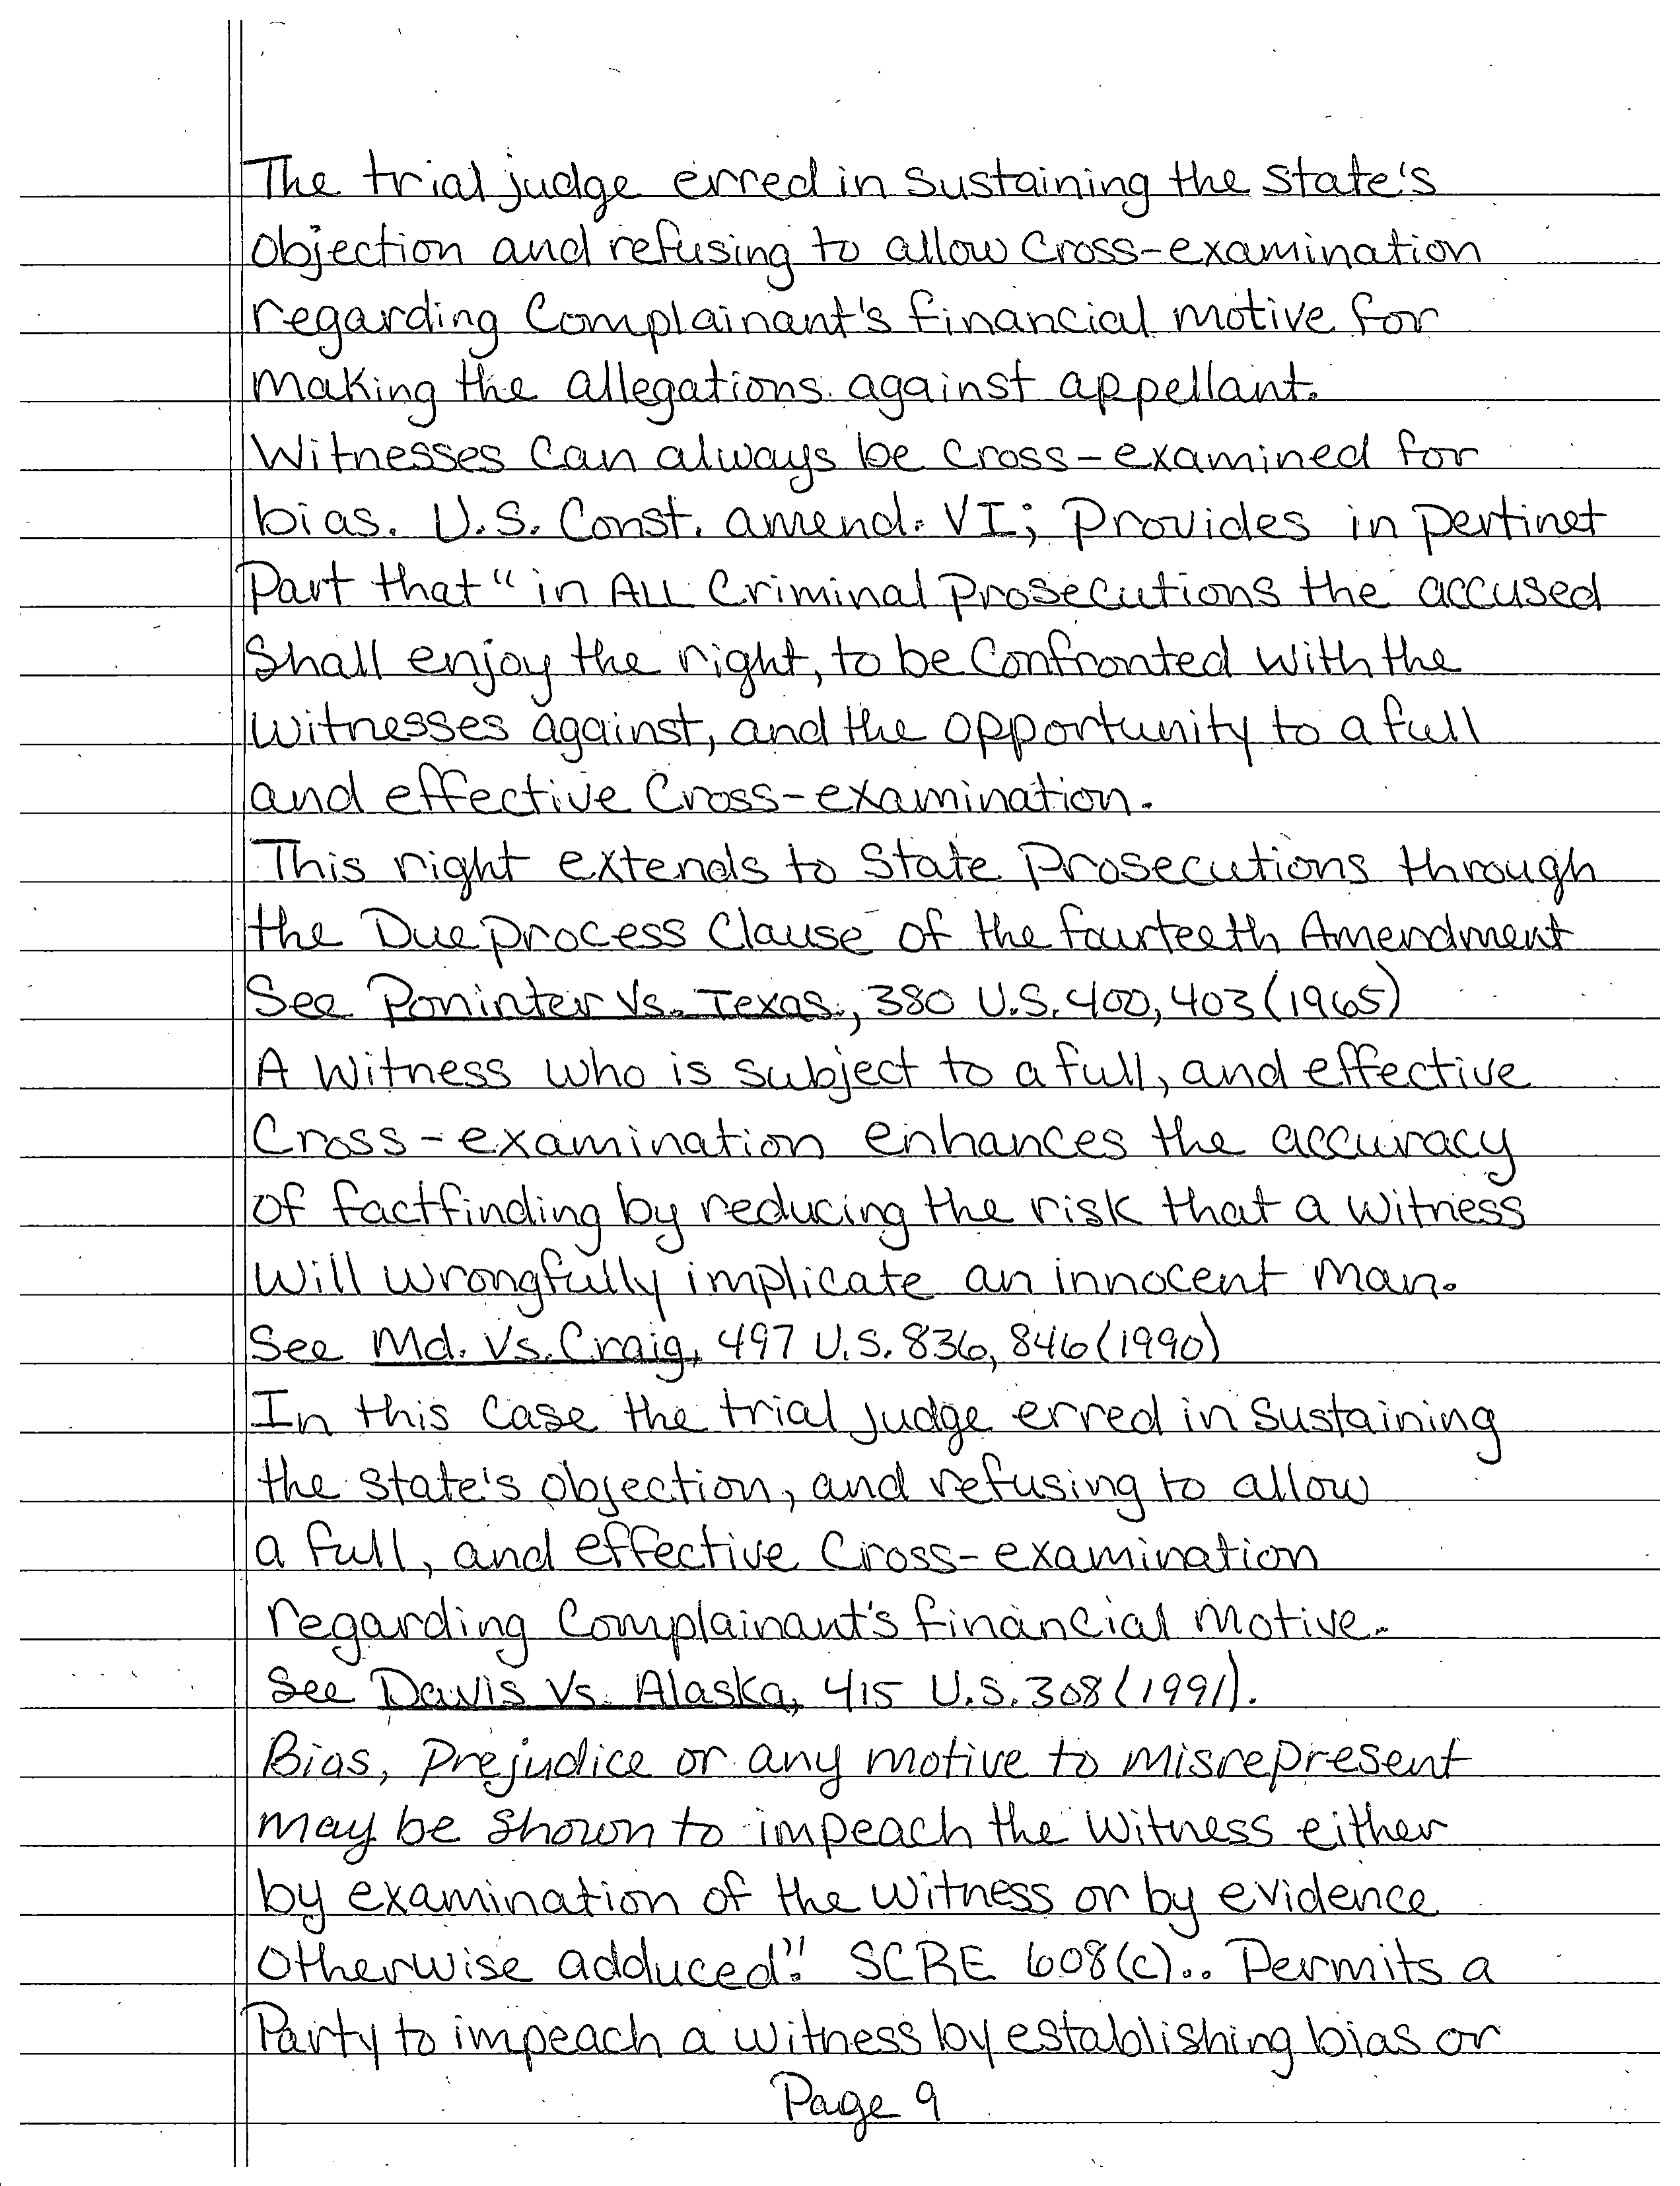 The trial judge erred in sustaining the state's
objection and refusing to allow cross-examination
regarding Complainant's financial motive for
making the allegations against appellant.
Witnesses can always be cross-examined for
bias. U.S. Const. amend. VI; Provides in pertinet
Part that "in ALL Criminal Prosecutions the accused
Shall enjoy the right, to be Confronted with the
witnesses against, and the opportunity to a full
and effective Cross-examination.
This right extends to State Prosecutions through
the Due process Clause of the fourteeth Amendment
See Poninter Vs. Texas., 380 U.S. 400, 403 (1965)
A Witness who is subject to a full, and effective
Cross-examination enhances the accuracy
of factfinding by reducing the risk that a witness
will wrongfully implicate an innocent man.
See Md. Vs. Craig, 497 U.S. 836, 846 (1990)
In this case the trial judge erred in sustaining
the state's objection, and refusing to allow
a full, and effective Cross-examination
regarding Complainant's financial motive.
See Davis Vs. Alaska, 415 U.S. 308 (1991).
Bias, Prejudice or any motive to misrepresent
may be shown to impeach the witness either
by examination of the witness or by evidence
otherwise adduced." SCRE 608(c).. Permits a
Party to impeach a witness by establishing bias or
Page 9